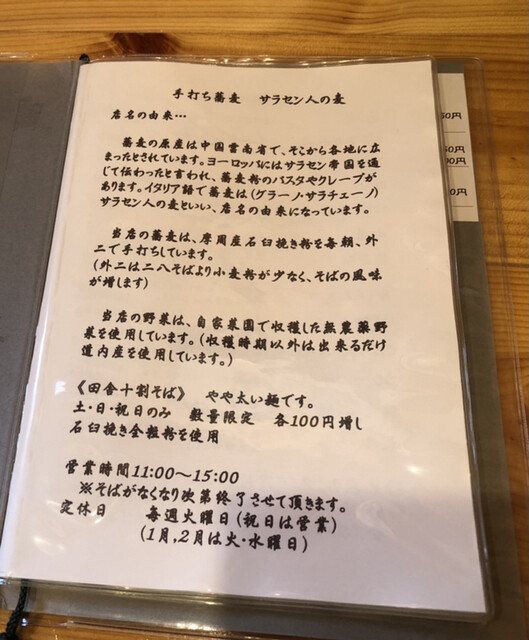 手打ち蕎麦　サラセン人の麦
店名の由来…
蕎麦の原産は中国雲南省で、そこから各地に広
まったとされています。ヨーロッパにはサラセン帝国を通
じて伝わったと言われ、蕎麦粉のパスタやクレープが
あります。イタリア語で蕎麦は(グラーノ・サラチェーノ)
サラセン人の麦といい、店名の由来になっています。
当店の蕎麦は、摩周産石臼挽き粉を毎朝、外
二で手打ちしています。
(外二は二八そばより小麦粉が少なく、そばの風味
が増します)
当店の野菜は、自家菜園で収穫した無農薬野
菜を使用しています。(収穫時期以外は出来るだけ
道内産を使用しています。)
《田舎十割そば》　やや太い麺です。
土・日・祝日のみ　数量限定　各100円増し
石臼挽き全粒粉を使用
営業時間11:00～15:00
※そばがなくなり次第終了させて頂きます。
定休日　毎週火曜日(祝日は営業)
(1月,2月は火・水曜日)
50円
50円
00円
0円